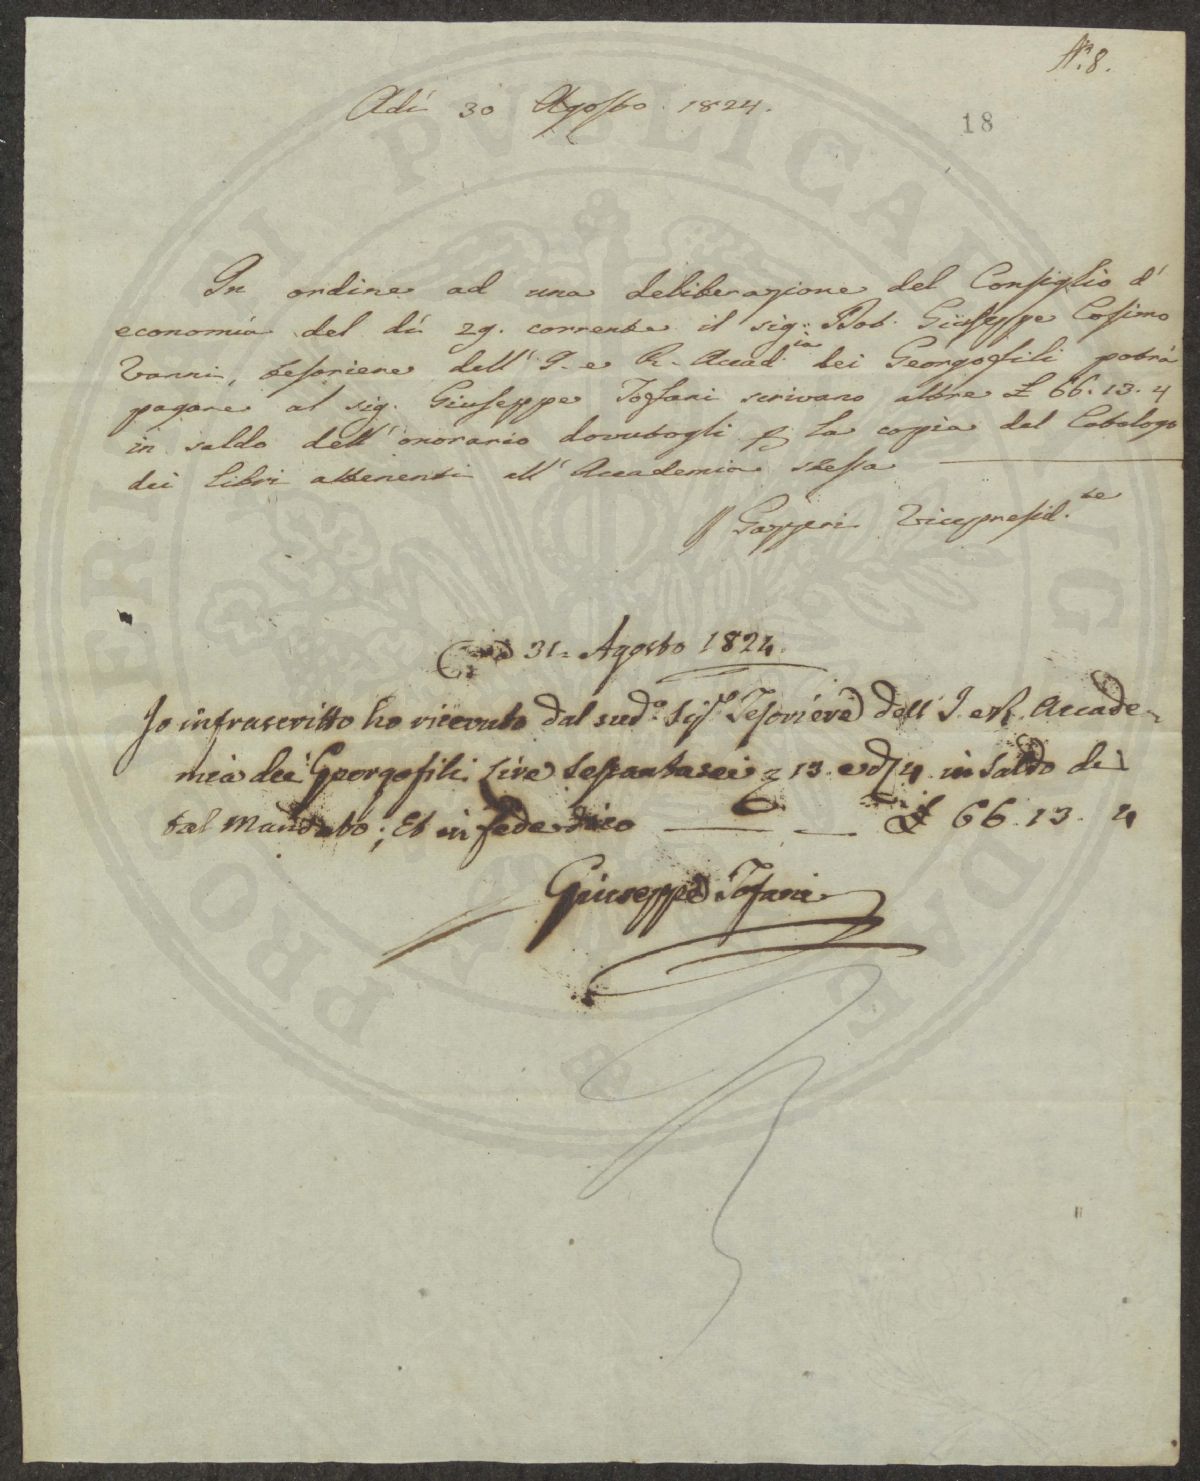 N.° 8.
18
Adì 30 Agosto 1824.
In ordine ad una deliberazione del Consiglio d'
economia del dì 29. corrente il sig.r Dot. Giuseppe Cosimo
Vanni, tesoriere dell' I. e R. Accad.ia dei Georgofili potrà
pagare al sig. Giuseppe Tofani scrivano altre £ 66.13.4
in saldo dell' onorario dovutogli p. la copia del Catalogo
dei libri attenenti all' Accademia stessa
Gazzeri Vicepresid.te
31. Agosto 1824.
Io infrascritto ho ricevuto dal sud.o Sig.r Tesoriere dell' I. e R. Accade-
mia dei Georgofili Lire Sessantasei 13. e d 4 in Saldo di
tal Mandato; Et in fede dico £ 66.13.4
Giuseppe Tofani
PROSPERITATI PVBLICAE AVGENDAE